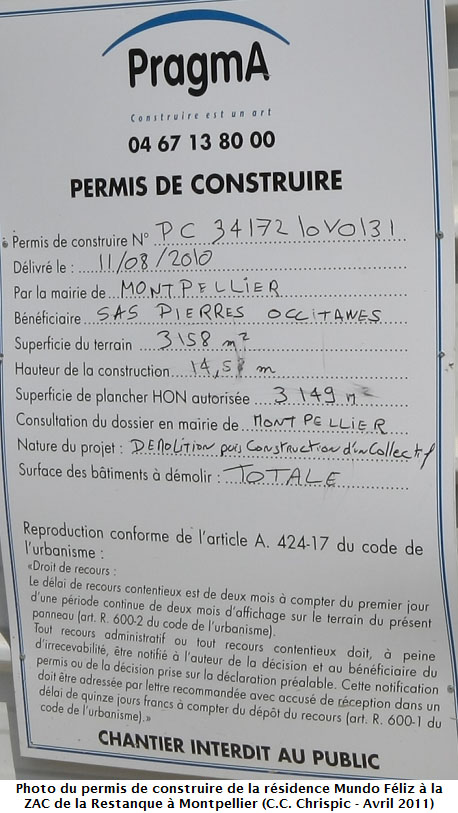 PragmA
Construire est un art
04 67 13 80 00
PERMIS DE CONSTRUIRE
Permis de construire N° PC 34172 10V0131
Délivré le : 11/08/2010
Par la mairie de MONTPELLIER
Bénéficiaire SAS PIERRES OCCITANES
Superficie du terrain 3158 m²
Hauteur de la construction 14,5 m
Superficie de plancher HON autorisée 3 149 m²
Consultation du dossier en mairie de MONTPELLIER
Nature du projet : DEMOLITION puis Construction d'un Collectif
Surface des bâtiments à démolir : TOTALE
Reproduction conforme de l'article A. 424-17 du code de
l'urbanisme :
«Droit de recours :
Le délai de recours contentieux est de deux mois à compter du premier jour
d'une période continue de deux mois d'affichage sur le terrain du présent
panneau (art. R. 600-2 du code de l'urbanisme).
Tout recours administratif ou tout recours contentieux doit, à peine
d'irrecevabilité, être notifié à l'auteur de la décision et au bénéficiaire du
permis ou de la décision prise sur la déclaration préalable. Cette notification
doit être adressée par lettre recommandée avec accusé de réception dans un
délai de quinze jours francs à compter du dépôt du recours (art. R. 600-1 du
code de l'urbanisme).»
CHANTIER INTERDIT AU PUBLIC
Photo du permis de construire de la résidence Mundo Féliz à la
ZAC de la Restanque à Montpellier (C.C. Chrispic - Avril 2011)